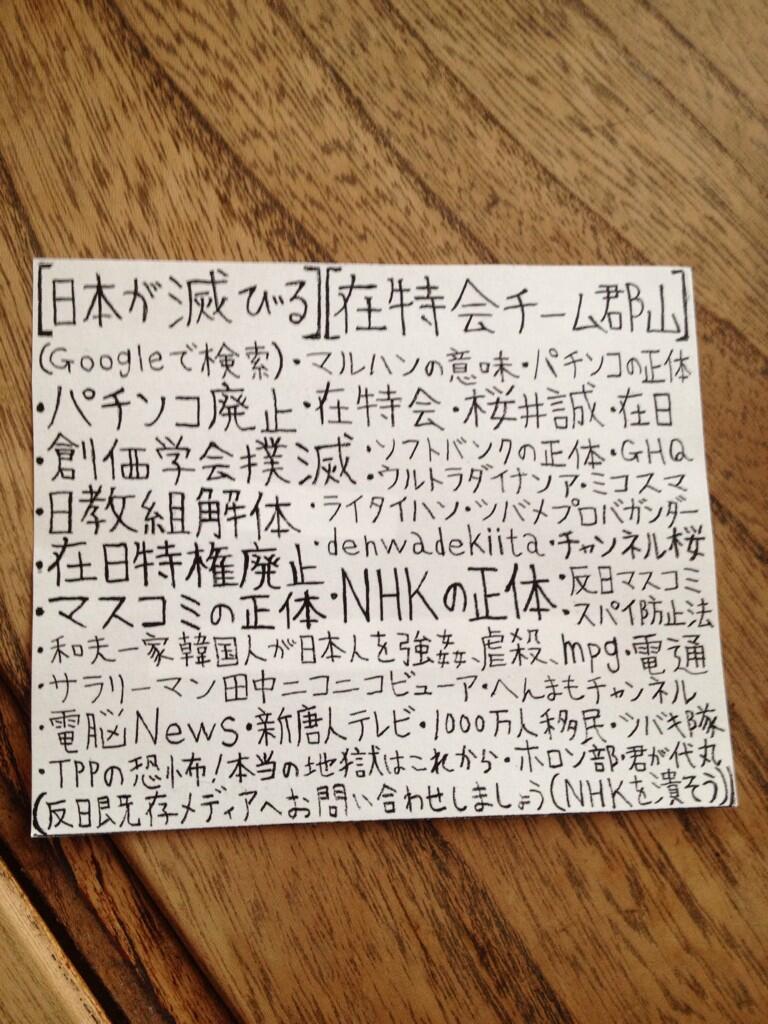 [日本が滅びる][在特会チーム郡山]
(Googleで検索)・マルハンの意味・パチンコの正体
・パチンコ廃止・在特会・桜井誠・在日
・創価学会撲滅・ソフトバンクの正体・GHQ
・ウルトラダイナソア・ミコスマ
・日教組解体・ライタイハン・ツバメプロバガンダー
・在日特権廃止・denwadekiita・チャンネル桜
・マスコミの正体・NHKの正体・反日マスコミ
・スパイ防止法
・和夫一家韓国人が日本人を強姦、虐殺、mpg・電通
・サラリーマン田中ニコニコビューア・へんまもチャンネル
・電脳News・新唐人テレビ・1000万人移民・ツバキ隊
・TPPの恐怖!本当の地獄はこれから・ホロン部・君が代丸
(反日既存メディアへお問い合わせしましょう(NHKを潰そう))